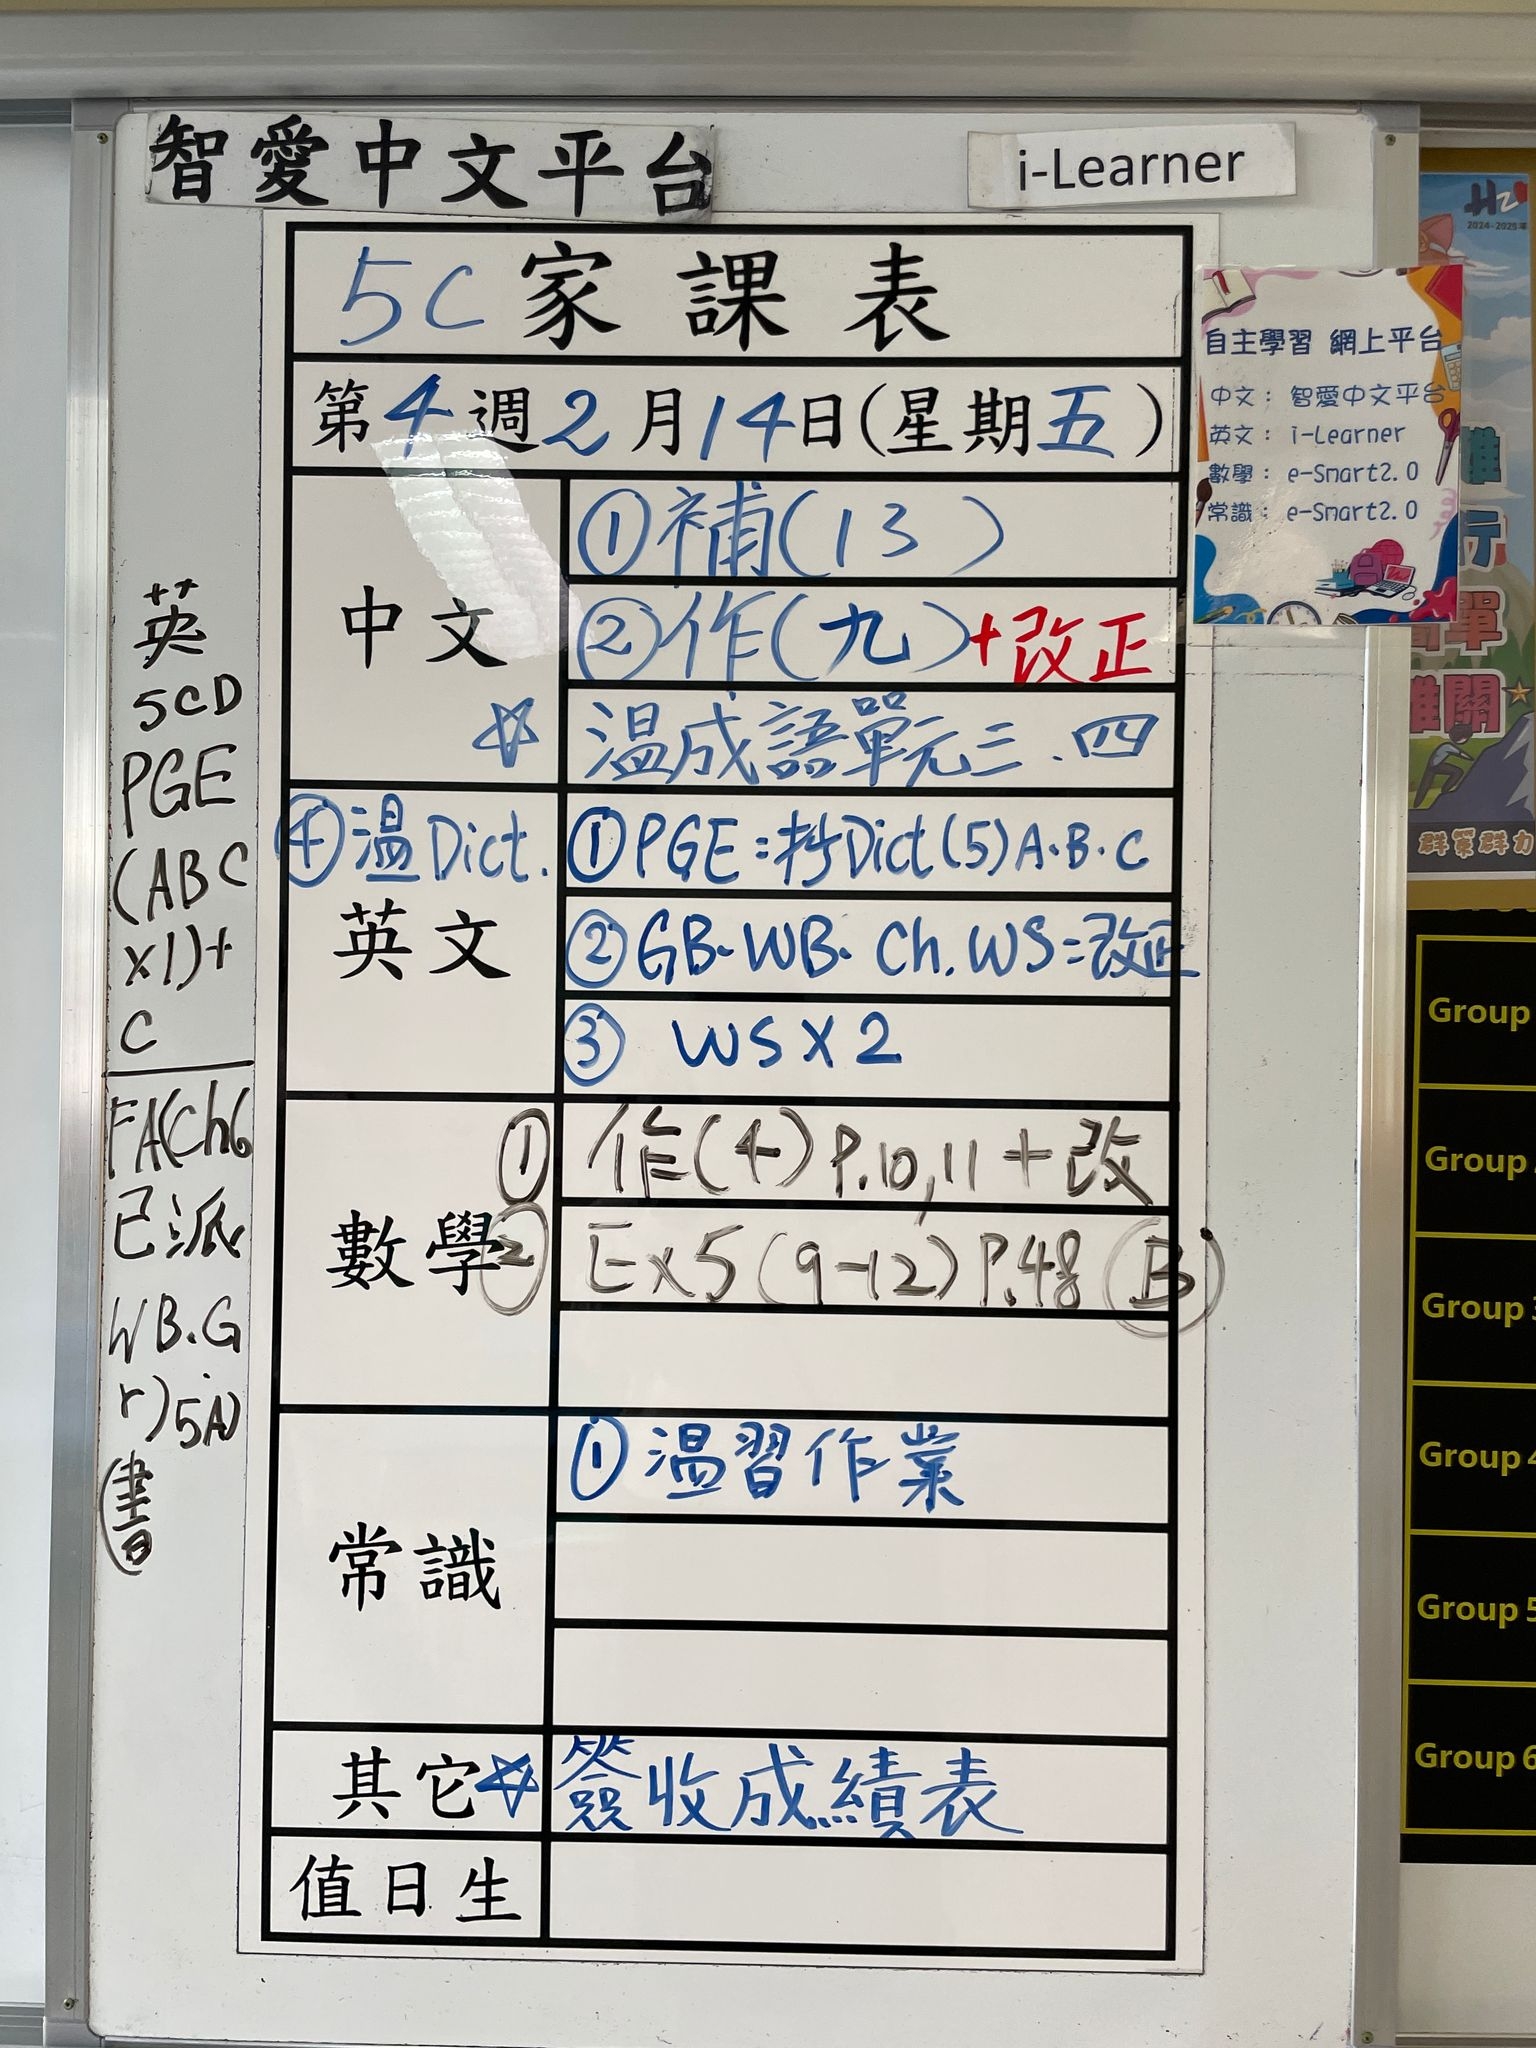 智愛中文平台
i-Learner
5C 家課表
第4週2月14日(星期五)
中文
①補(13)
②作(九)+改正
☆ 温成語單元三、四
英文
①PGE:抄Dict(5)A.B.C
②GB.WB. Ch.WS:改正
③ WS×2
④温Dict.
數學
① 作(4)P.10,11+改
② Ex5(9-12)P.48(B)
常識
①温習作業
其它
☆簽收成績表
值日生
英
5CD
PGE
(ABC
x1)+
C
FA(Ch6
已派
WB.G
r)5A)
書
自主學習 網上平台
中文: 智愛中文平台
英文: i-Learner
數學: e-Smart2.0
常識: e-Smart2.0
2024-2025
行
單
關
群策群力
Group
Group
Group 3
Group 4
Group 5
Group 6